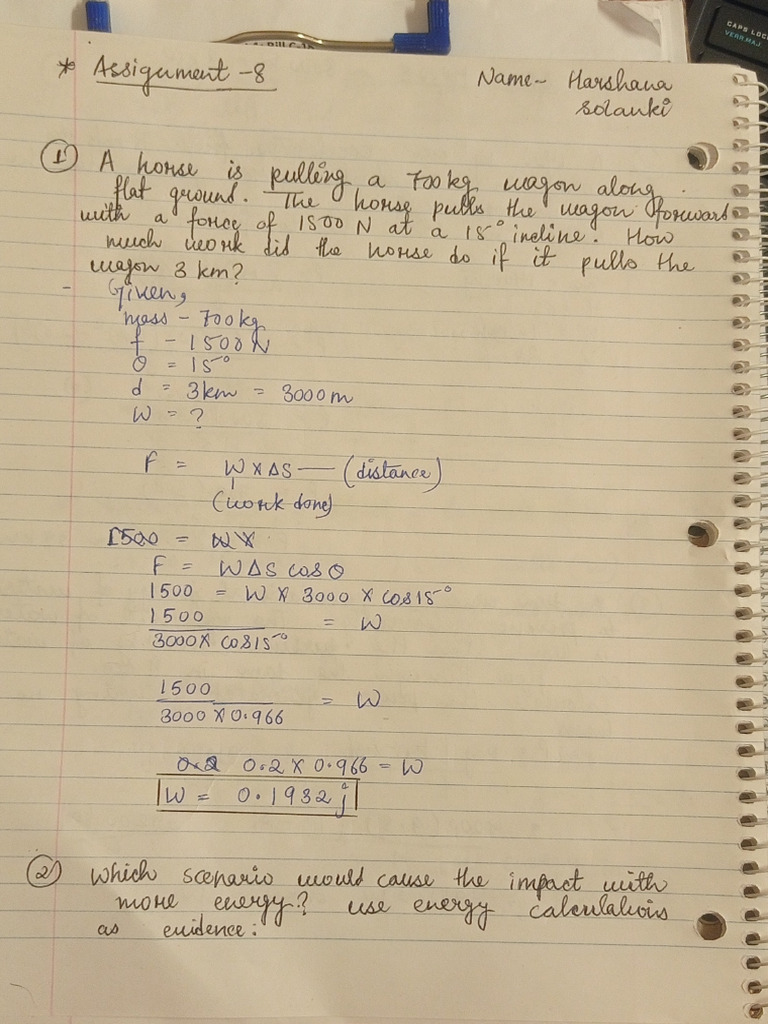 CAPS LOCK
VERR.MAJ
* Assignment -8
Name- Harshana
Solanki
① A horse is pulling a 700 kg wagon along
flat ground. The horse pulls the wagon forward
with a force of 1500 N at a 15° incline. How
much work did the horse do if it pulls the
wagon 3 km?
- Given,
mass - 700 kg
f - 1500 N
θ = 15°
d = 3 km = 3000 m
W = ?
F = W × ΔS — (distance)
(work done)
1500 = W ×
F = W ΔS cos θ
1500 = W × 3000 × cos 15°
1500 = W
3000 × cos 15°
1500 = W
3000 × 0.966
0.2 0.2 × 0.966 = W
W = 0.1932 j
② Which scenario would cause the impact with
more energy? use energy calculations
as evidence: